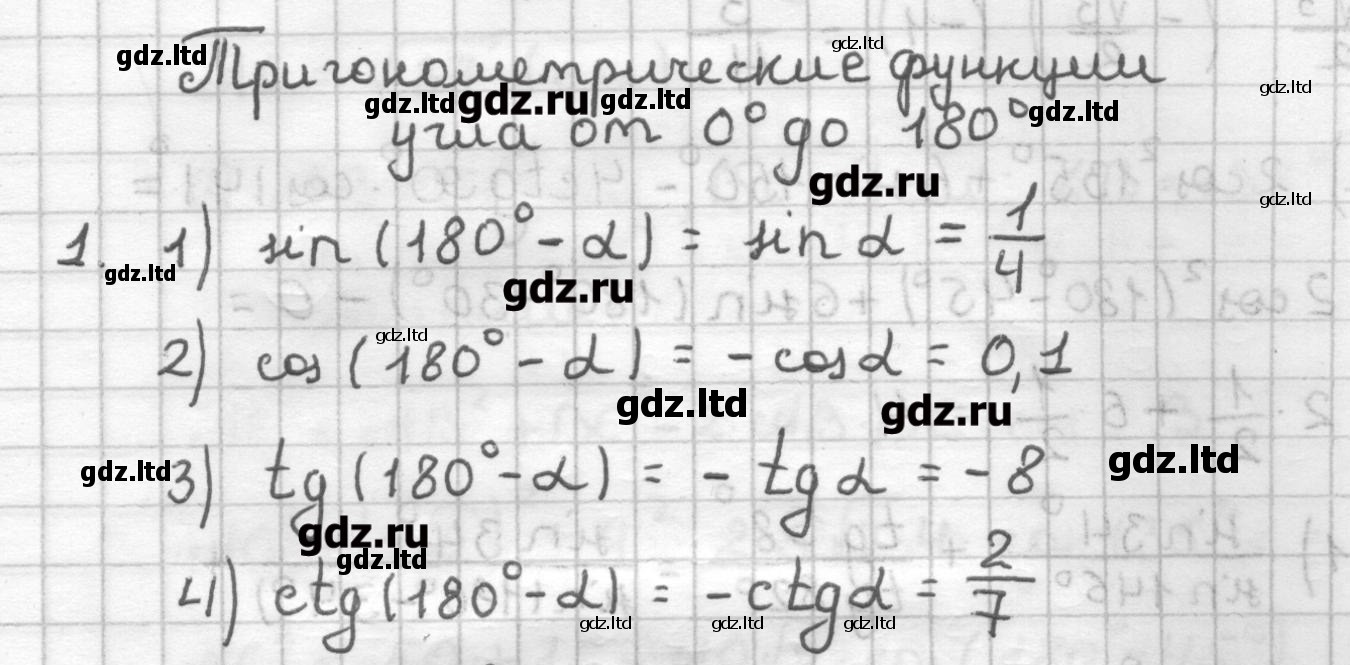 gdz.ltd gdz.ltd
Тригонометрические функции
gdz.ltd gdz.ru gdz.ltd gdz.ltd gdz.ltd
угла от 0° до 180°
gdz.ru gdz.ltd
1. 1) sin (180° - α) = sin α = 1/4
gdz.ltd gdz.ru
gdz.ltd
2) cos (180° - α) = - cos α = 0,1
gdz.ltd gdz.ru
gdz.ltd 3) tg (180° - α) = - tg α = - 8 gdz.ltd
gdz.ru
gdz.ltd
4) ctg (180° - α) = - ctg α = 2/7
gdz.ltd gdz.ltd gdz.ltd